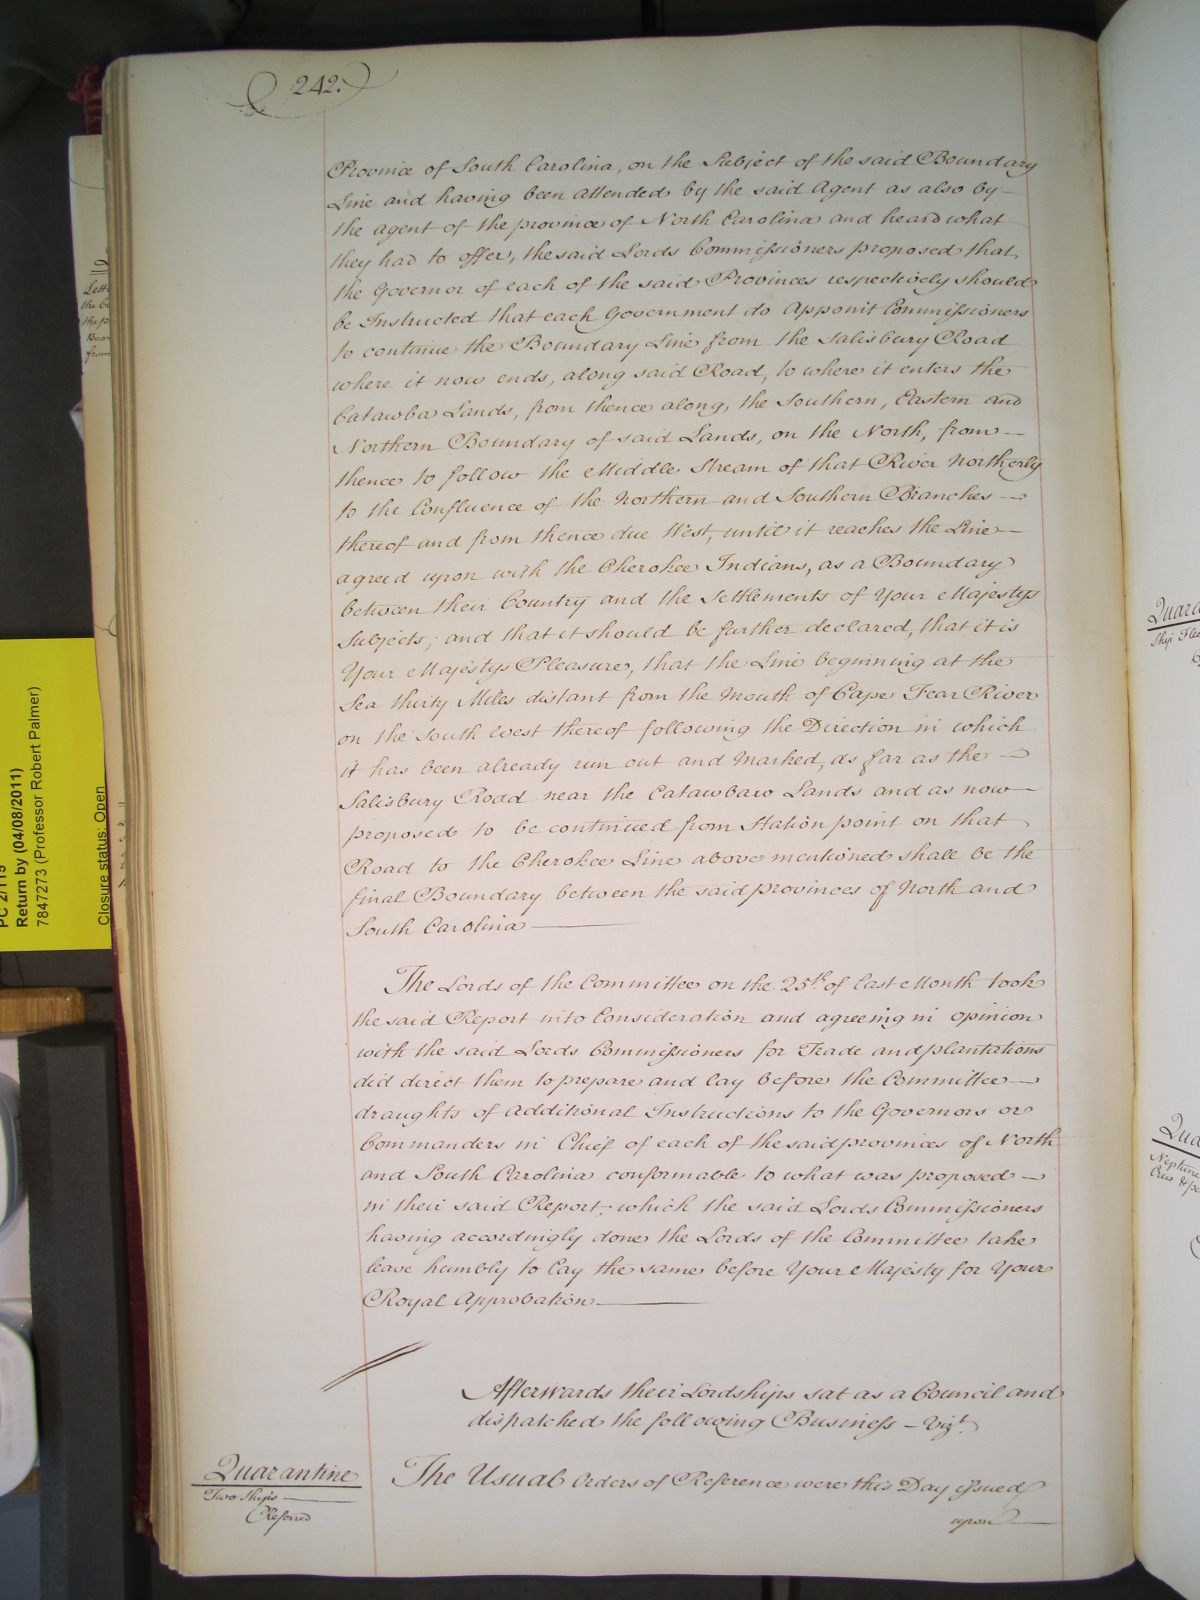 242.
Province of South Carolina, on the Subject of the said Boundary
Line and having been attended by the said Agent as also by
the Agent of the province of North Carolina and heard what
they had to offer, the said Lords Commissioners proposed that
the Governor of each of the said Provinces respectively should
be Instructed that each Government do Appoint Commissioners
to continue the Boundary Line from the Salisbury Road
where it now ends, along said Road, to where it enters the
Catawba Lands, from thence along, the Southern, Eastern and
Northern Boundary of said Lands, on the North, from
thence to follow the Middle Stream of that River Northerly
to the Confluence of the Northern and Southern Branches
thereof and from thence due West, until it reaches the Line
agreed upon with the Cherokee Indians, as a Boundary
between their Country and the Settlements of Your Majestys
Subjects; and that it should be further declared, that it is
Your Majestys Pleasure, that the Line beginning at the
Sea thirty Miles distant from the Mouth of Cape Fear River
on the South West thereof following the Direction in which
it has been already run out and Marked, as far as the
Salisbury Road near the Catawbaw Lands and as now
proposed to be continued from Station point on that
Road to the Cherokee Line above mentioned shall be the
final Boundary between the said provinces of North and
South Carolina
The Lords of the Committee on the 25th. of last Month took
the said Report into Consideration and agreeing in opinion
with the said Lords Commissioners for Trade and plantations
did direct them to prepare and lay before the Committee
draughts of Additional Instructions to the Governors or
Commanders in Chief of each of the said provinces of North
and South Carolina conformable to what was proposed
in their said Report; which the said Lords Commissioners
having accordingly done the Lords of the Committee take
leave humbly to lay the same before Your Majesty for Your
Royal Approbation
Afterwards their Lordships sat as a Council and
dispatched the following Business - Vizt.
Quarantine
Two Ships
Referred
The Usual Orders of Reference were this Day issued
upon
Return by (04/08/2011)
7847273 (Professor Robert Palmer)
Closure status: Open